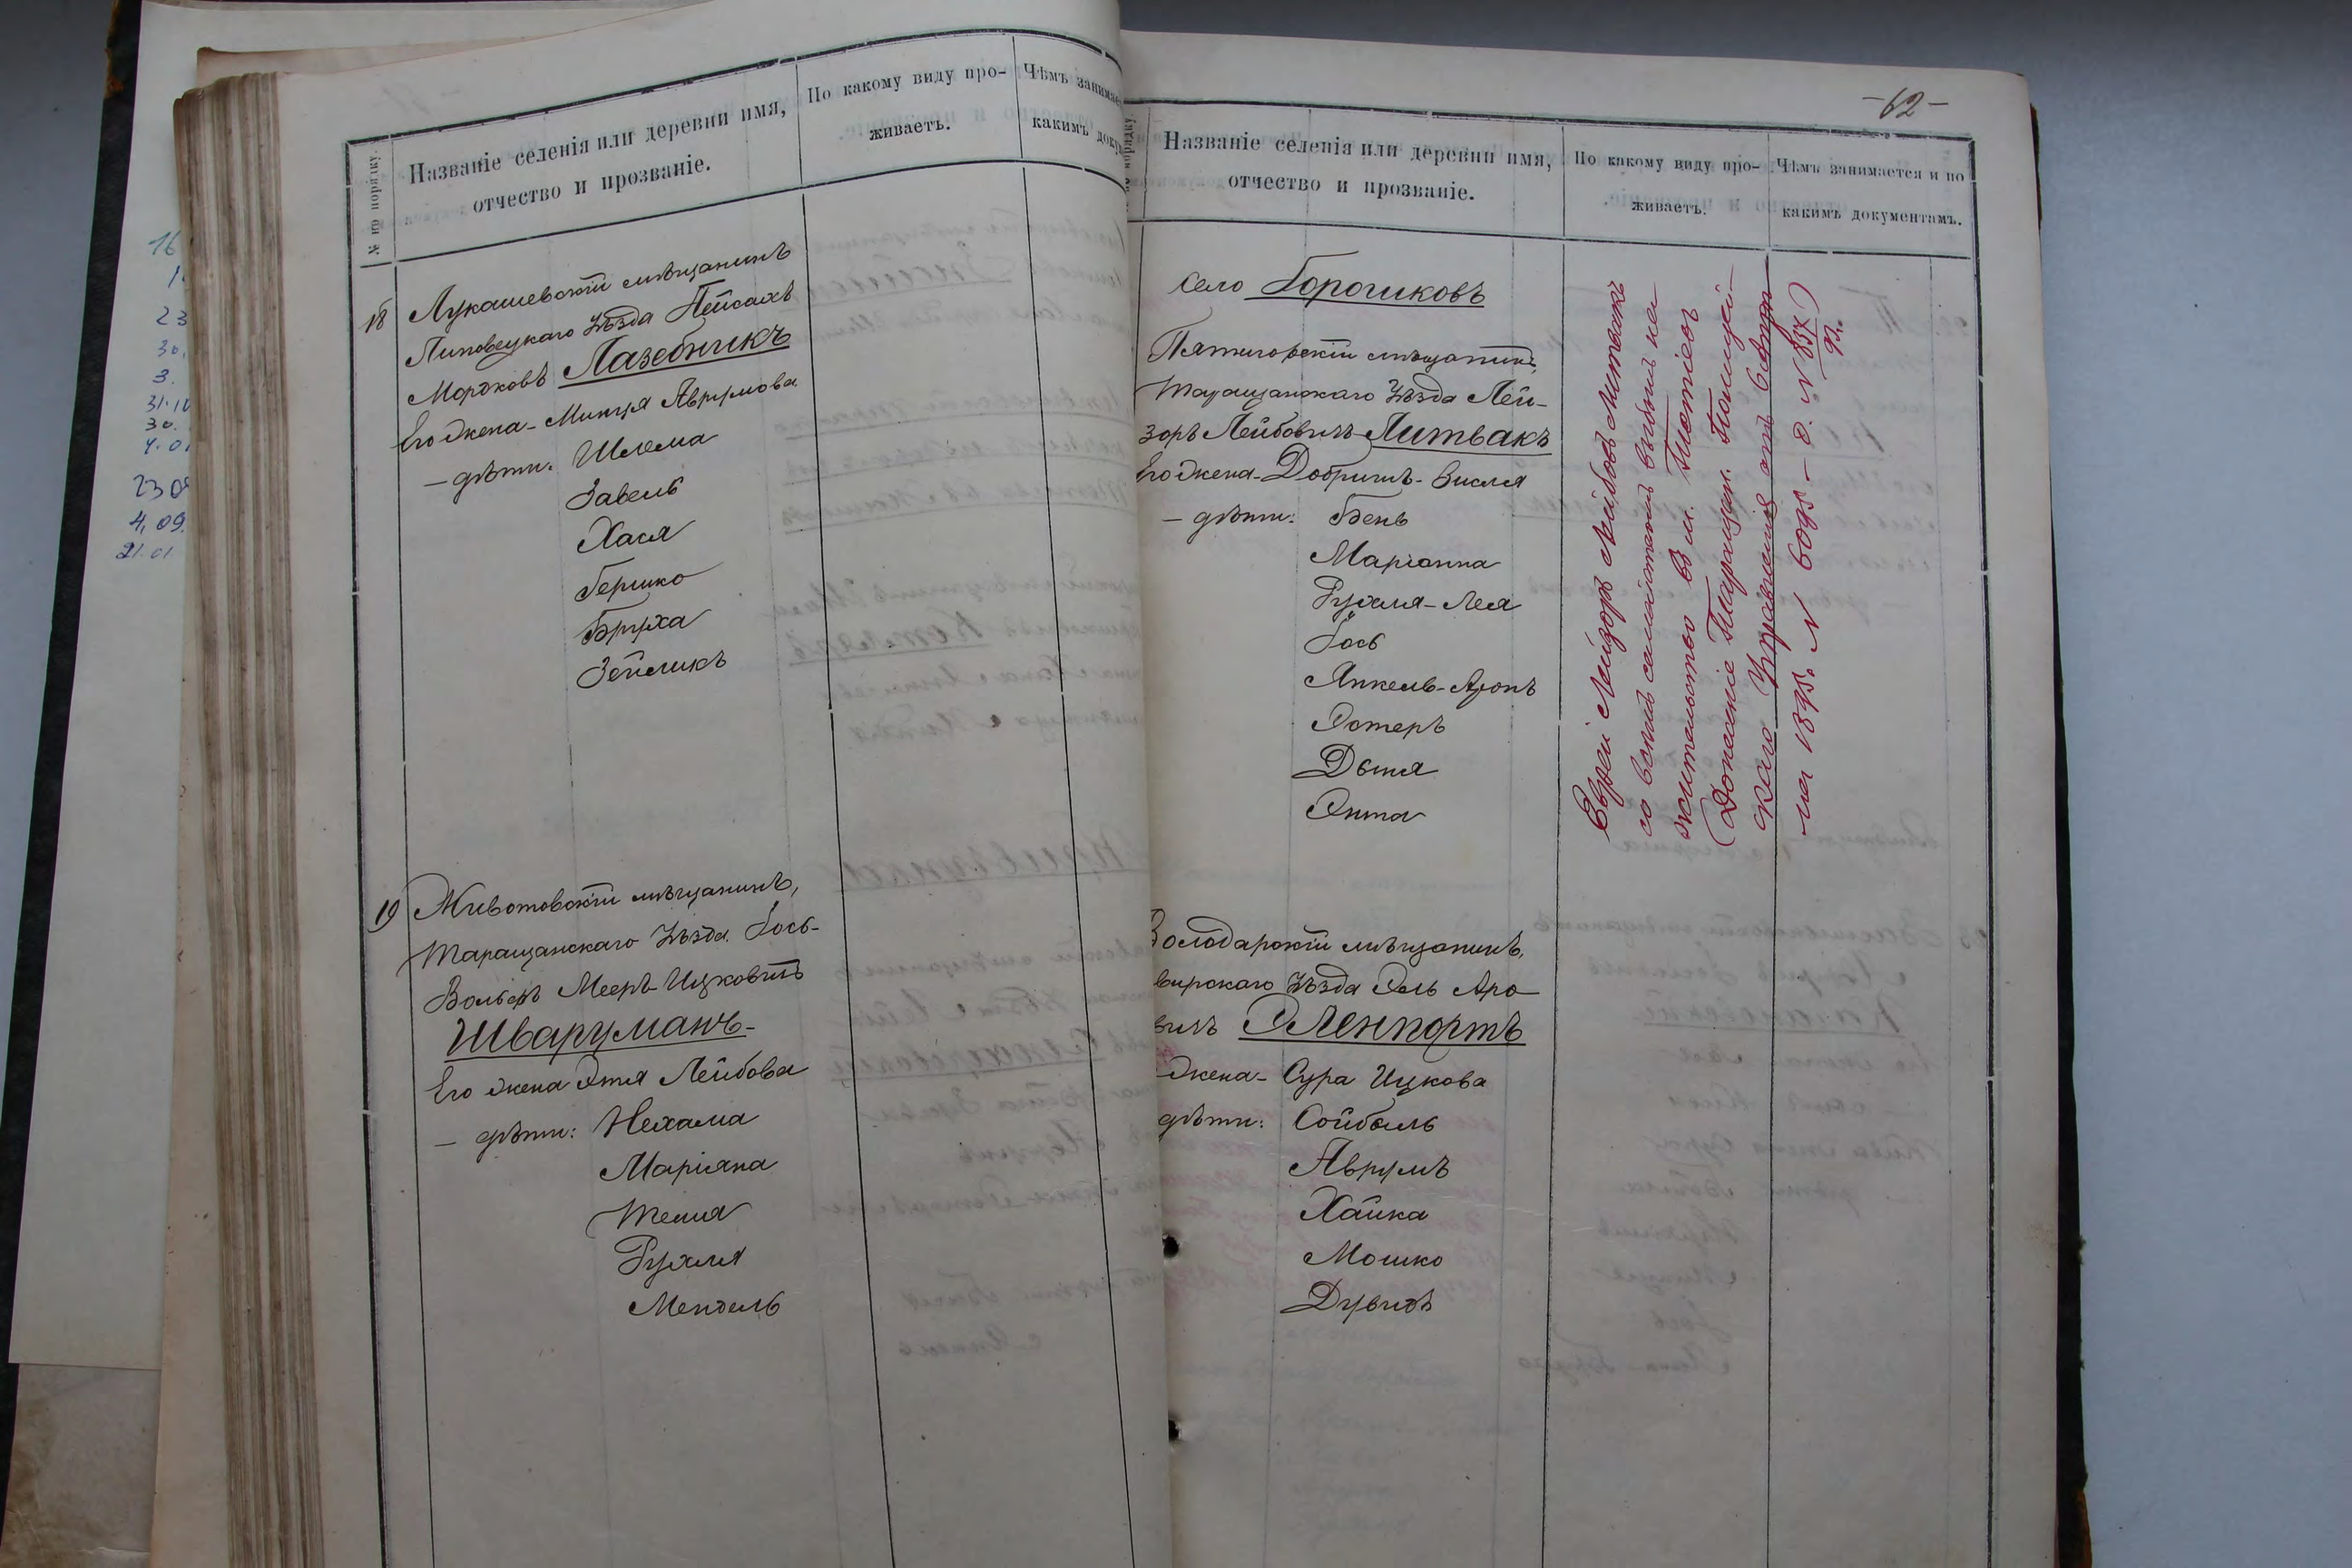 16
23
30.
3.
31.10
30.
4.01
23 09
4.09.
21.01
№ по порядку.
Названіе селенія или деревни имя,
отчество и прозваніе.
По какому виду про-
живаетъ.
Чѣмъ занимае
какимъ доку
18
Лукашевскій мѣщанинъ
Липовецкаго Уѣзда Пейсахъ
Мордковъ Лазебникъ
Его жена - Минця Аврумова
— дѣти: Шлема
Завель
Хася
Гершко
Бруха
Зейликъ
19
Животовскій мѣщанинъ,
Таращанскаго Уѣзда Іось-
Вольфъ Мееръ-Ицковичъ
Шварцманъ-
Его жена Этя Лейбова
— дѣти: Нехама
Маріяна
Темя
Рухля
Мендель
-62-
порядку
Названіе селенія или деревни имя,
отчество и прозваніе.
По какому виду про-
живаетъ.
Чѣмъ занимается и по
какимъ документамъ.
Село
Пятигорскій мѣщанинъ,
Таращанскаго Уѣзда Лей-
зоръ Лейбовичъ Литвакъ
Его жена - Добришъ-
— дѣти: Бень
Маріанна
Рухля-Лея
Іось
Янкель-Аронъ
Эстеръ
Двися
Энта
Еврей Лейзоръ Лейбовъ Литвакъ
со всемъ семействомъ выбылъ на
жительство въ м. Тетіевъ
(Донесеніе Таращан. Полицей-
скаго Управленія отъ
на 1895. N 6095 - д. N 837/92.)
Володарскій мѣщанинъ,
вирскаго Уѣзда Эль Аро
вичъ Эленпортъ
жена - Сура Ицкова
дѣти: Сойбель
Аврумъ
Хайка
Мошко
Дувидъ